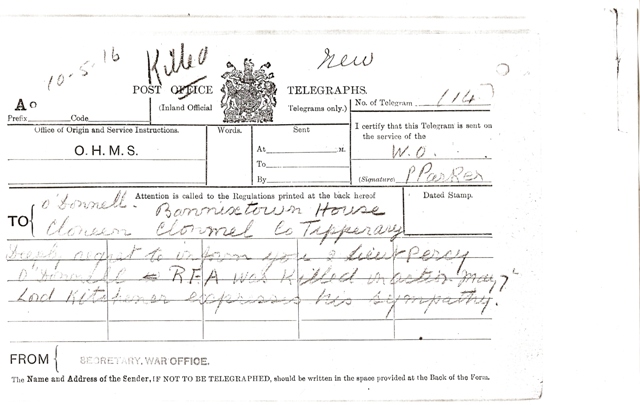 10-5-16 Killed New
POST OFFICE TELEGRAPHS.
(Inland Official Telegrams only.)
No. of Telegram 114
A
Prefix Code
Office of Origin and Service Instructions.
Words.
Sent
At M.
To
By
O.H.M.S.
I certify that this Telegram is sent on
the service of the
W.O.
(Signature) P Parker
Attention is called to the Regulations printed at the back hereof
Dated Stamp.
TO { O'Donnell. Bannixtown House
Cloneen Clonmel Co Tipperary
Deeply regret to inform you 2 Lieut Percy
O'Donnell RFA was killed in action May 7th
Lord Kitchener expresses his sympathy.
FROM { SECRETARY, WAR OFFICE.
The Name and Address of the Sender, IF NOT TO BE TELEGRAPHED, should be written in the space provided at the Back of the Form.